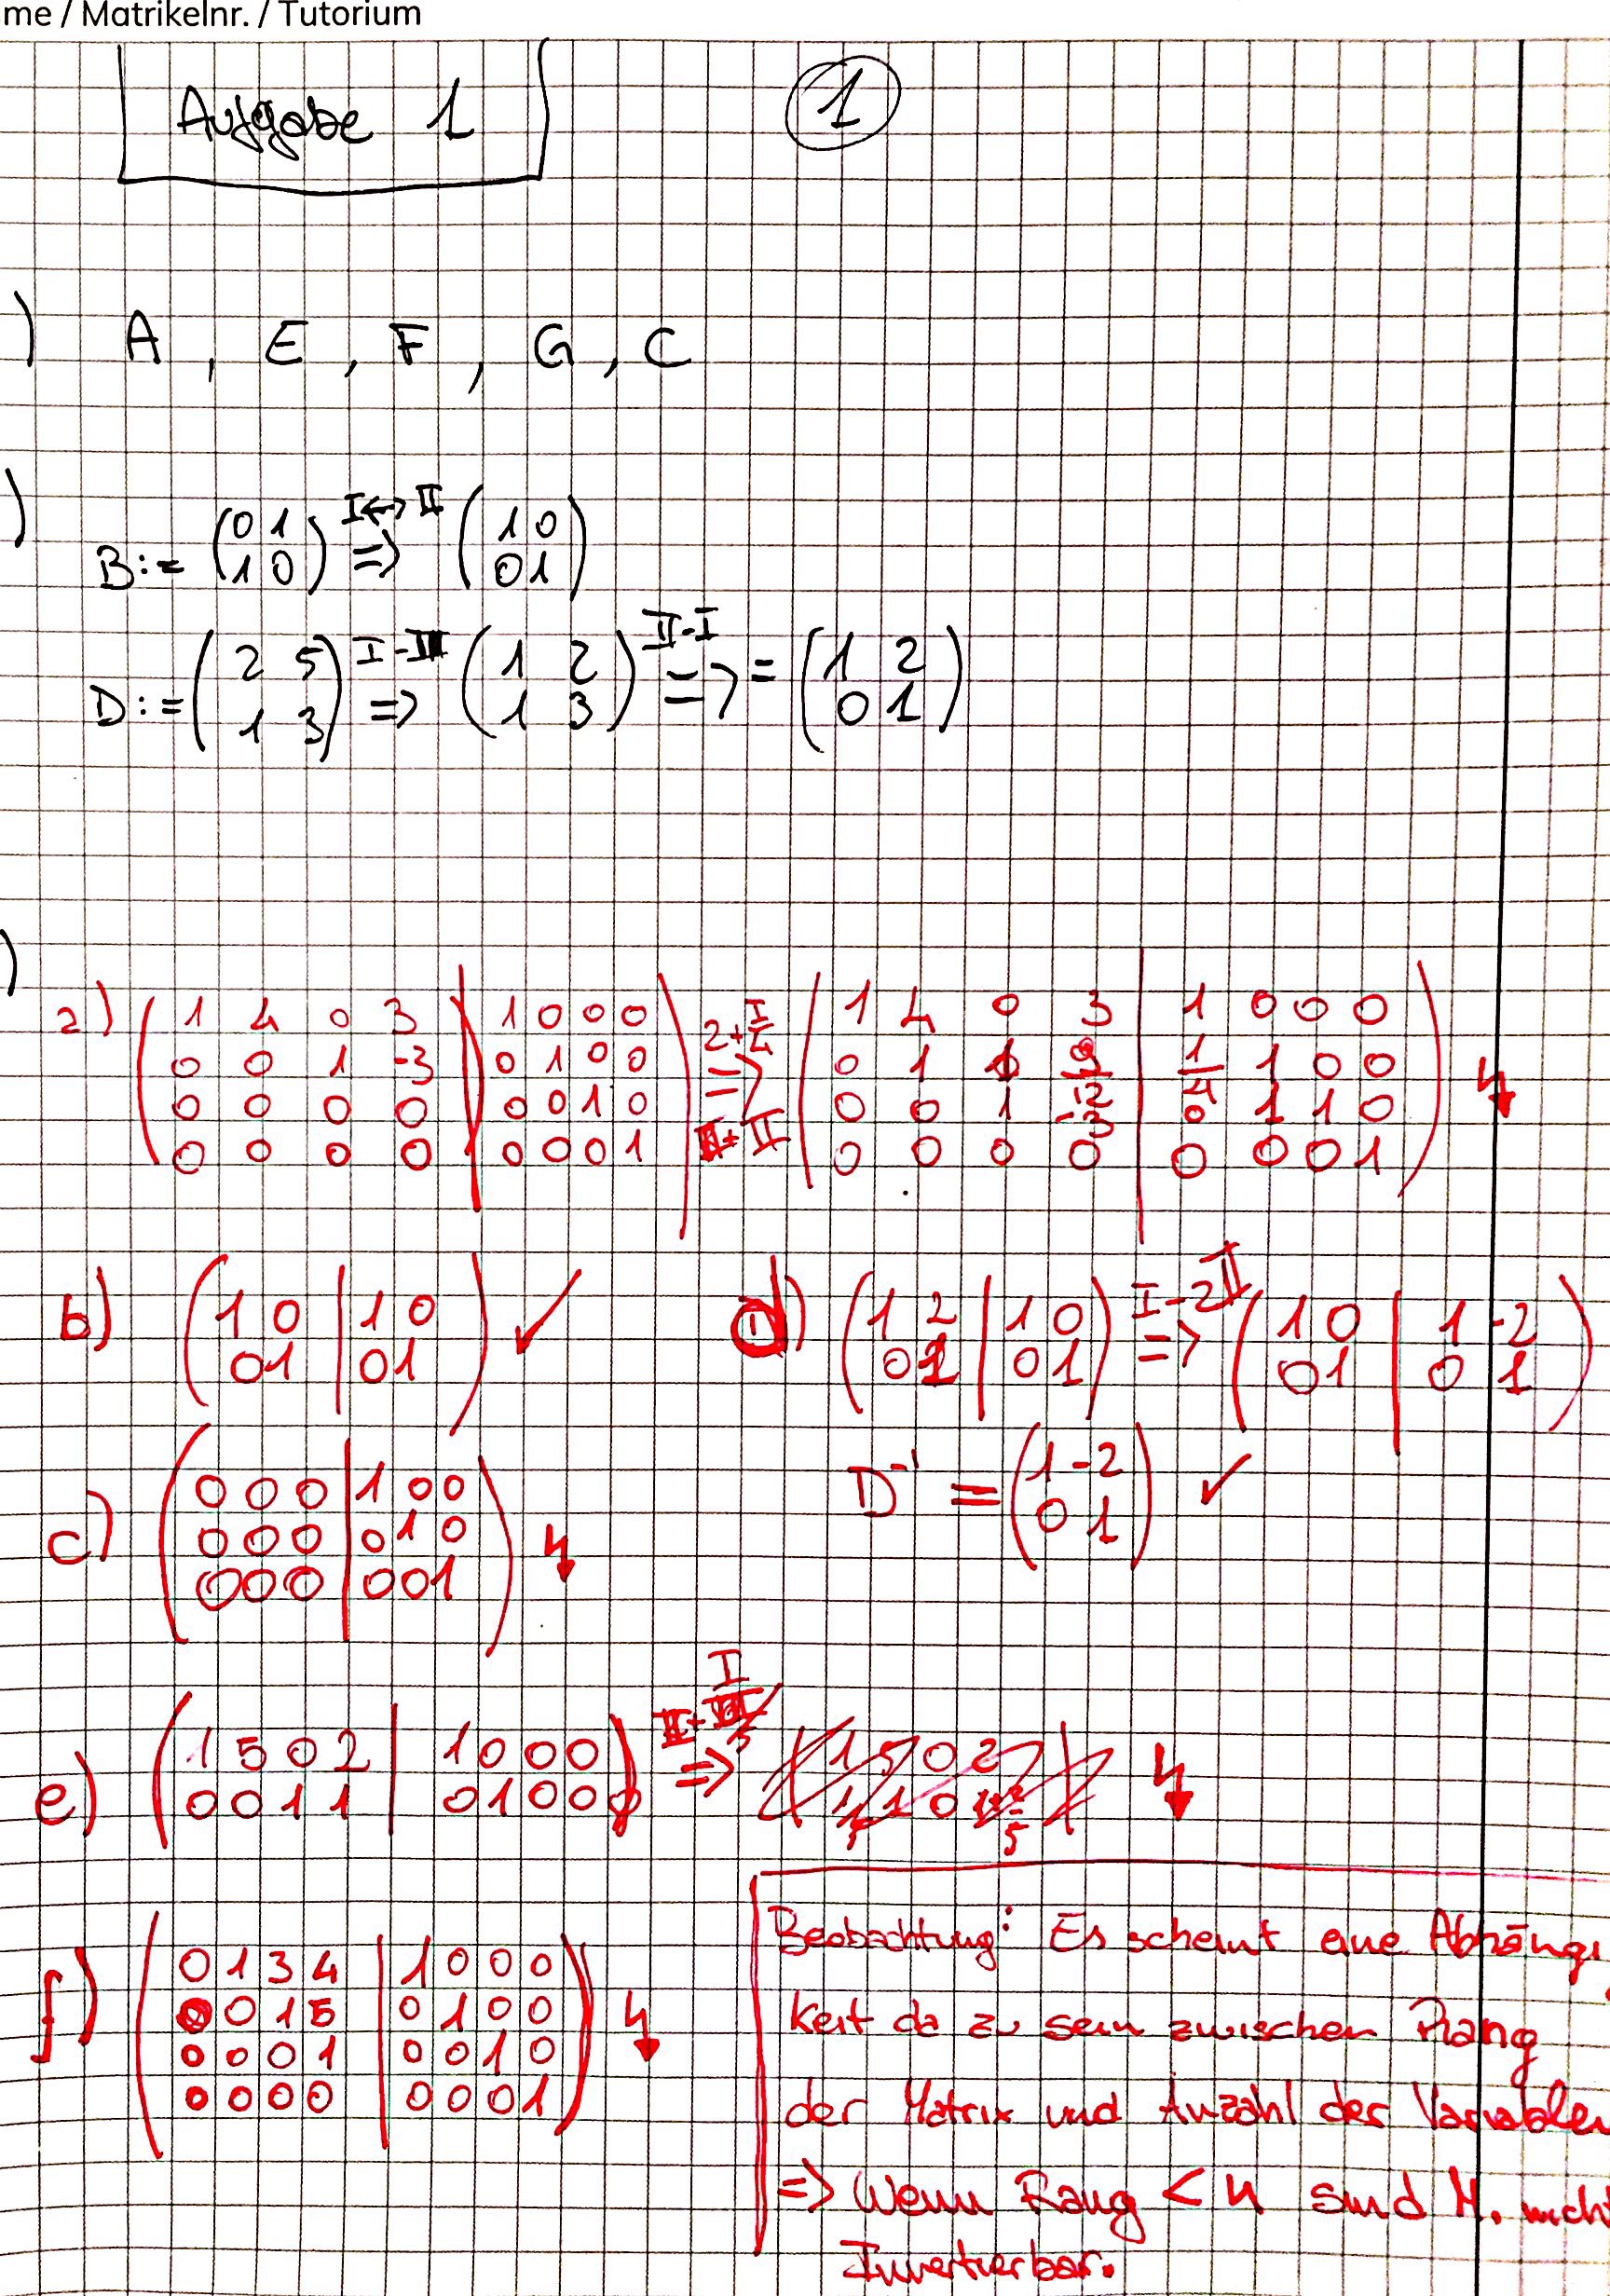 me / Matrikelnr. / Tutorium
Aufgabe 1
1
) A , E , F , G , C
)
B := (0 1 I<->II (1 0
1 0) => 0 1)
D := (2 5 I-II (1 2 II-I (1 2
1 3) => 1 3) => = 0 1)
)
a) (1 4 0 3 | 1 0 0 0) (1 4 0 3 | 1 0 0 0)
0 0 1 -3 | 0 1 0 0 => 0 1
0 0 0 0 | 0 0 1 0 0 0 1 -3 | 0 1 1 0
0 0 0 0 | 0 0 0 1 0 0 0 0 | 0 0 0 1 ↯
b) (1 0 | 1 0 ✓
0 1 | 0 1)
d) (1 2 | 1 0 I-2II (1 0 | 1 -2
0 1 | 0 1) => 0 1 | 0 1)
D⁻¹ = (1 -2 ✓
0 1)
c) (0 0 0 | 1 0 0
0 0 0 | 0 1 0 ↯
0 0 0 | 0 0 1)
e) (1 5 0 2 | 1 0 0 0
0 0 1 1 | 0 1 0 0) => ↯
f) (0 1 3 4 | 1 0 0 0
0 0 1 5 | 0 1 0 0 ↯
0 0 0 1 | 0 0 1 0
0 0 0 0 | 0 0 0 1)
Beobachtung: Es scheint eine Abhängi
keit da zu sein zwischen Rang
der Matrix und Anzahl der Variablen
=> Wenn Rang < n sind M. nicht
Invertierbar.